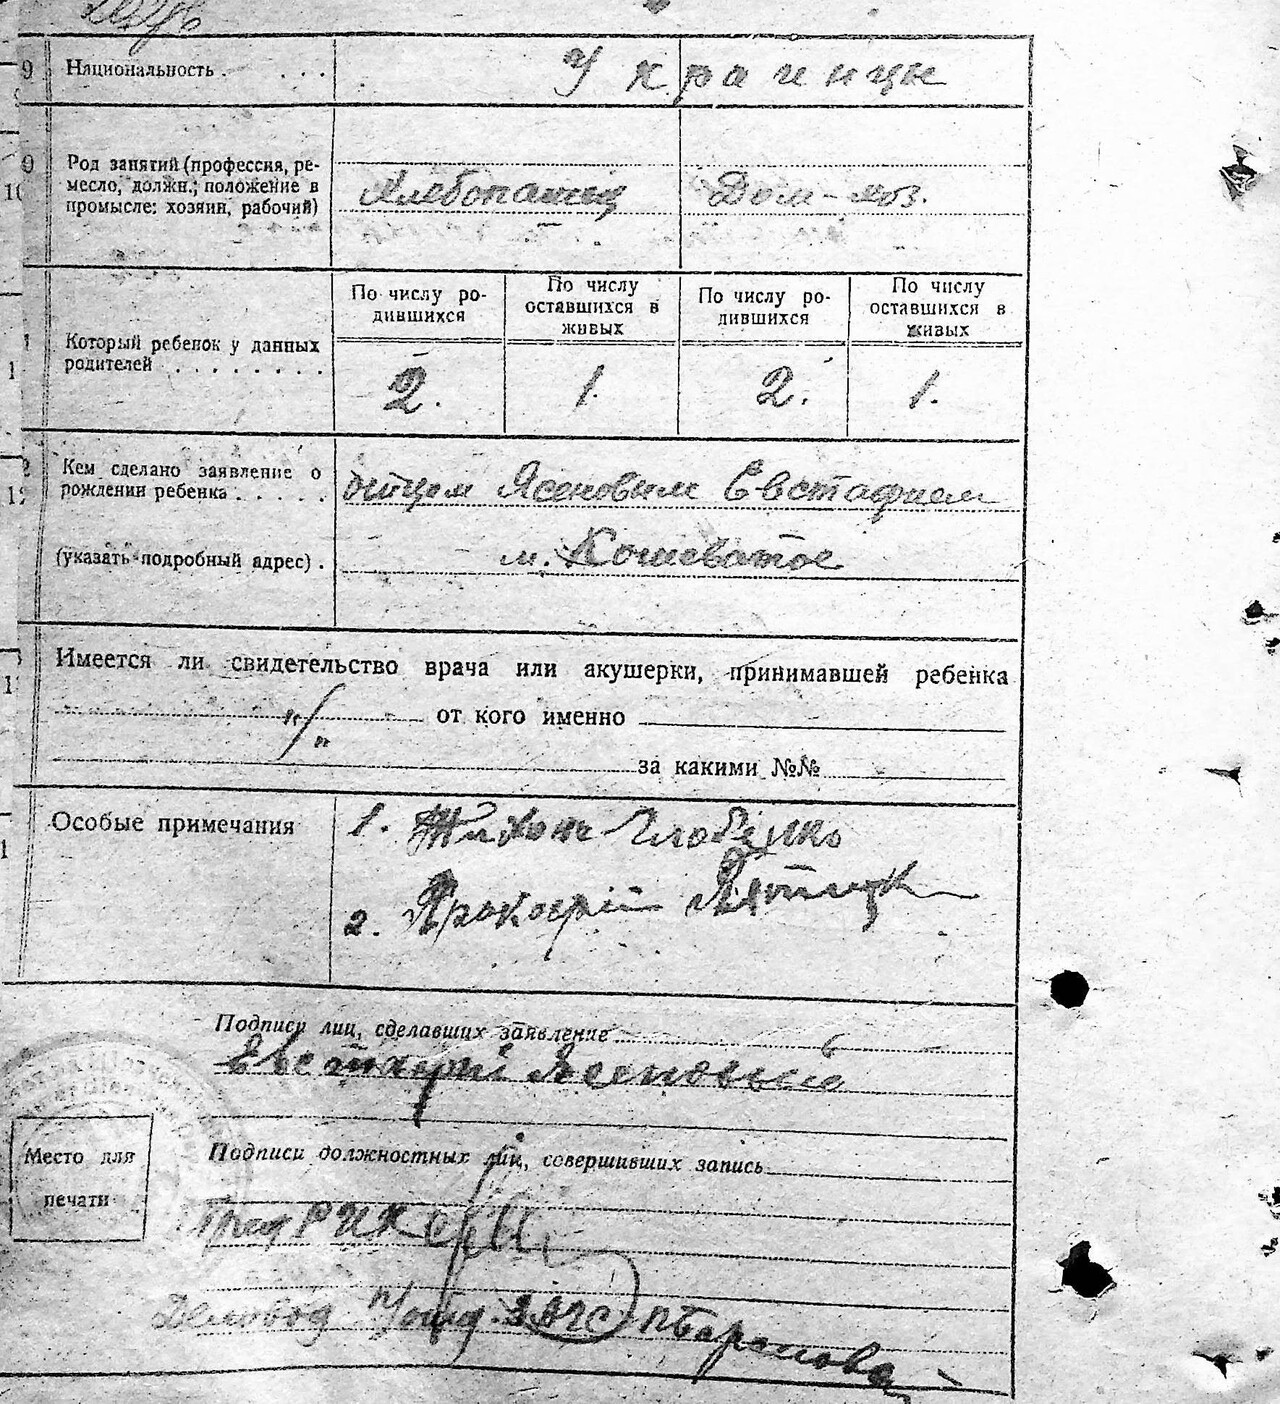 9 Национальность . . . . Украинцы
9 Род занятий (профессия, ре-
10 месло, должн.; положение в
промысле: хозяин, рабочий) Хлебопашец Дом-хоз.
По числу ро-
дившихся
По числу
оставшихся в
живых
По числу ро-
дившихся
По числу
оставшихся в
живых
Который ребенок у данных
родителей . . . . . . . .
2. 1. 2. 1.
Кем сделано заявление о
рождении ребенка . . . . . отцом Ясеновым Евстафием
(указать подробный адрес) . м. Кошеватое
Имеется ли свидетельство врача или акушерки, принимавшей ребенка
"/" от кого именно
за какими №№
Особые примечания 1. Глобенко
2. Прокофій
Подписи лиц, сделавших заявление
Евстафій Ясеновый
Подписи должностных лиц, совершивших запись
Место для
печати
Пред РИК
Деловод ЗАГС